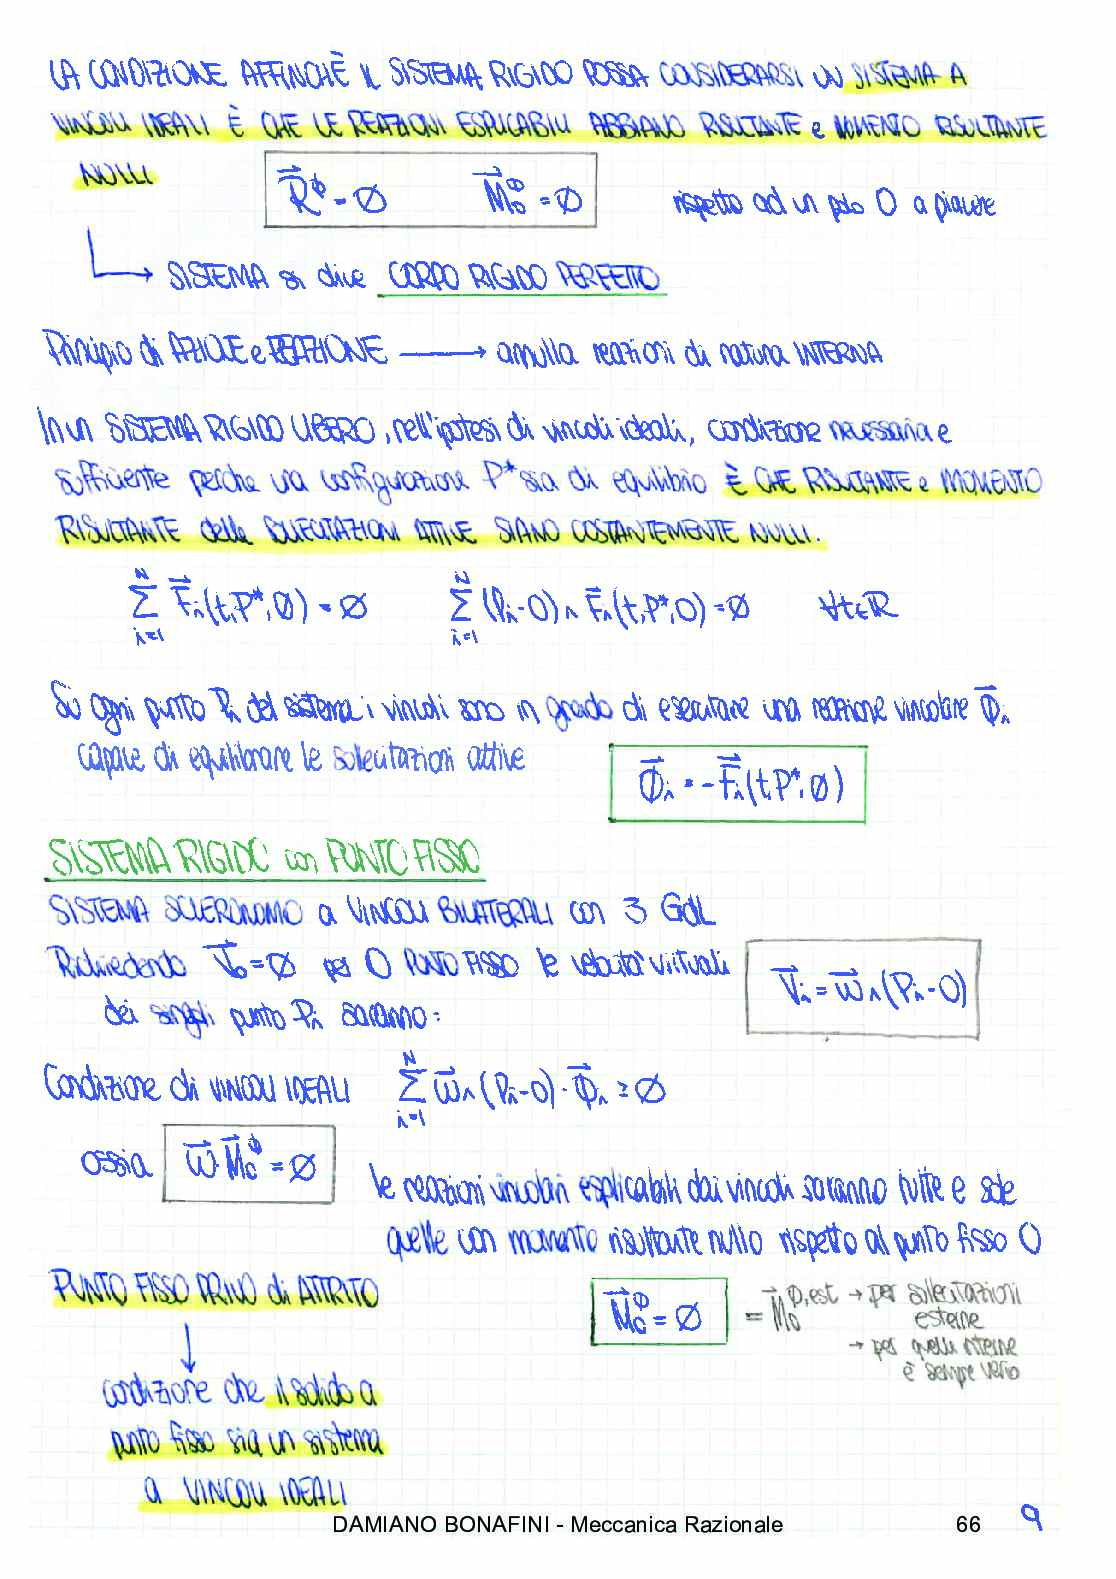 LA CONDIZIONE AFFINCHÈ IL SISTEMA RIGIDO POSSA CONSIDERARSI UN SISTEMA A
VINCOLI IDEALI È CHE LE REAZIONI ESPLICABILI ABBIANO RISULTANTE e MOMENTO RISULTANTE
NULLI
R⃗^ϕ = Ø    M⃗_O^ϕ = Ø    rispetto ad un polo O a piacere
→ SISTEMA si dice CORPO RIGIDO PERFETTO
Principio di AZIONE e REAZIONE → annulla reazioni di natura INTERNA
In un SISTEMA RIGIDO LIBERO, nell'ipotesi di vincoli ideali, condizione necessaria e
sufficiente perche una configurazione P* sia di equilibrio È CHE RISULTANTE e MOMENTO
RISULTANTE delle SOLLECITAZIONI ATTIVE SIANO COSTANTEMENTE NULLI.
∑_{i=1}^{N} F⃗_i(t,P*,Ø) = Ø    ∑_{i=1}^{N} (P_i-O)∧F⃗_i(t,P*,O) = Ø    ∀t∈R
Su ogni punto P_i del sistema i vincoli sono in grado di esercitare una reazione vincolare Φ⃗_i
capace di equilibrare le sollecitazioni attive
Φ⃗_i = -F⃗_i(t,P*,Ø)
SISTEMA RIGIDO con PUNTO FISSO
SISTEMA SCLERONOMO a VINCOLI BILATERALI con 3 GdL
Richiedendo V⃗_O = Ø per O PUNTO FISSO le velocità virtuali
dei singoli punto P_i saranno:
V⃗_i = ω⃗∧(P_i-O)
Condizione di VINCOLI IDEALI    ∑_{i=1}^{N} ω⃗∧(P_i-O)·Φ⃗_i ≥ Ø
ossia ω⃗·M⃗_O^ϕ = Ø
le reazioni vincolari esplicabili dai vincoli saranno tutte e sole
quelle con momento risultante nullo rispetto al punto fisso O
PUNTO FISSO PRIVO di ATTRITO
M⃗_O^ϕ = Ø = M⃗_O^{ϕ,est} → per sollecitazioni
esterne
→ per quelle interne
è sempre vero
condizione che il solido a
punto fisso sia un sistema
a VINCOLI IDEALI
DAMIANO BONAFINI - Meccanica Razionale    66    9